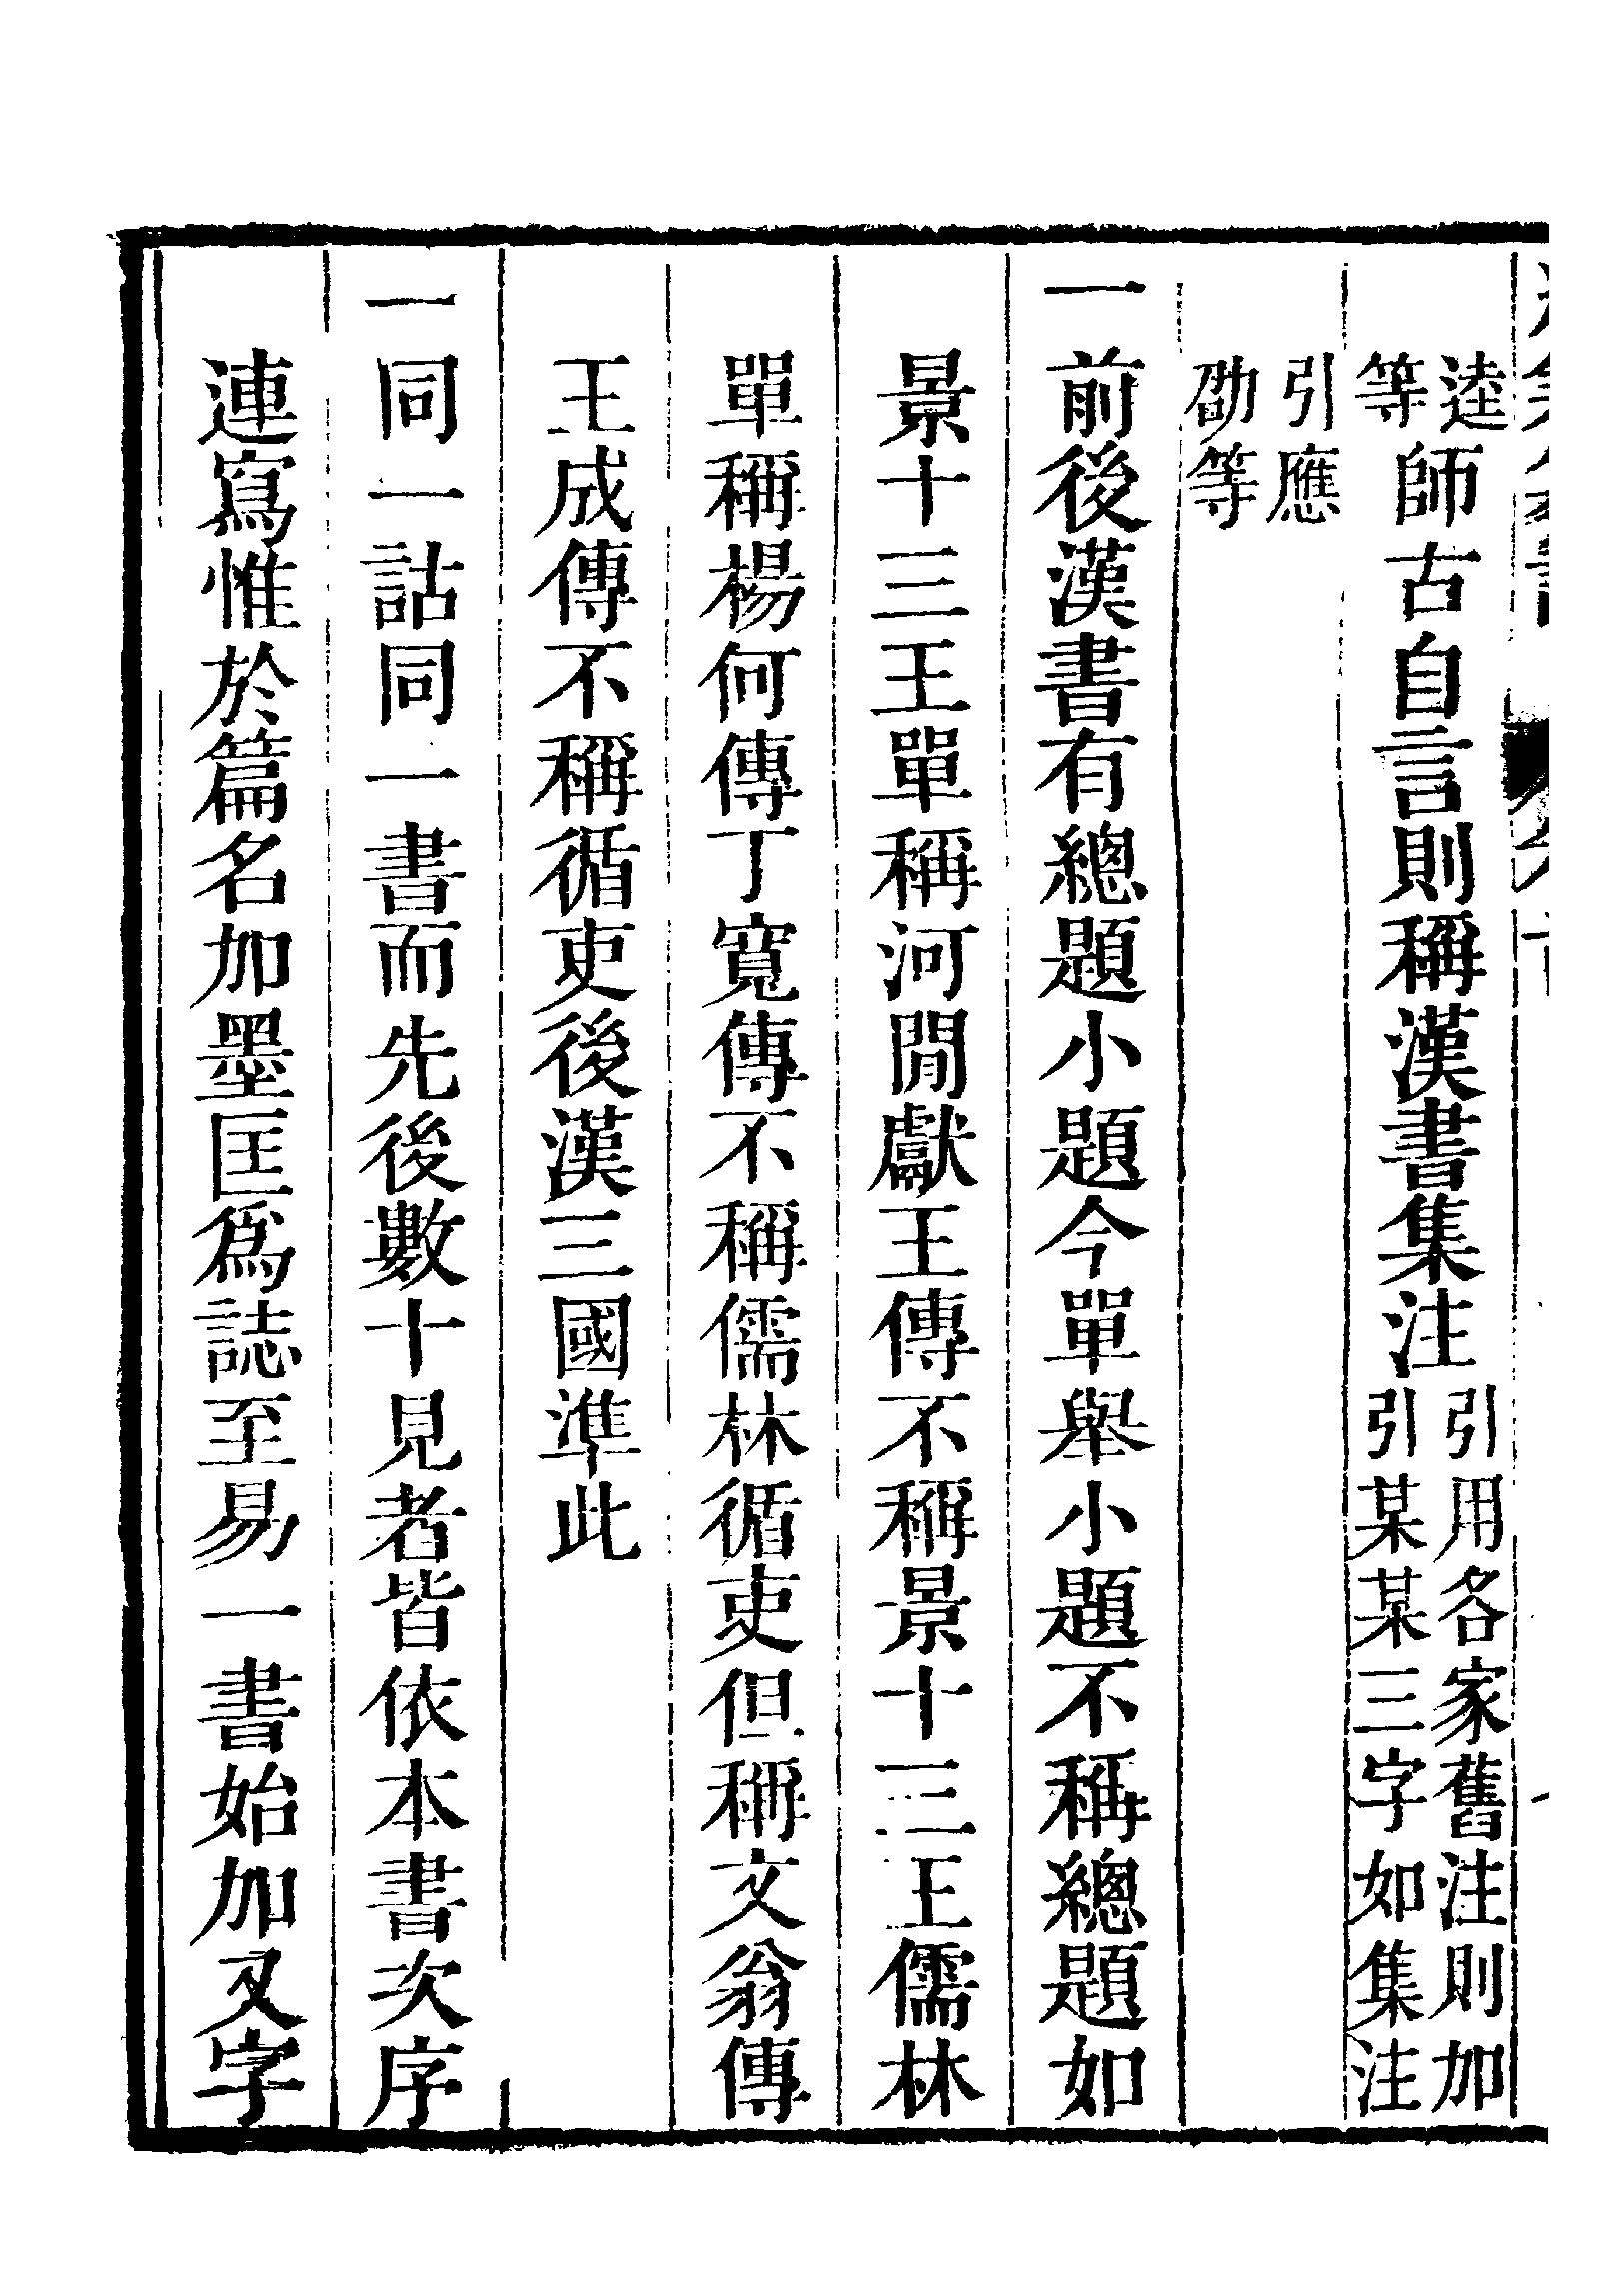 逵等師古自言則稱漢書集注引用各家舊注則加引某某三字如集注
引應劭等
一前後漢書有總題小題今單舉小題不稱總題如
景十三王單稱河閒獻王傳不稱景十三王儒林
單稱楊何傳丁寬傳不稱儒林循吏但稱文翁傳
王成傳不稱循吏後漢三國準此
一同一詁同一書而先後數十見者皆依本書次序
連寫惟於篇名加墨匡爲誌至易一書始加又字